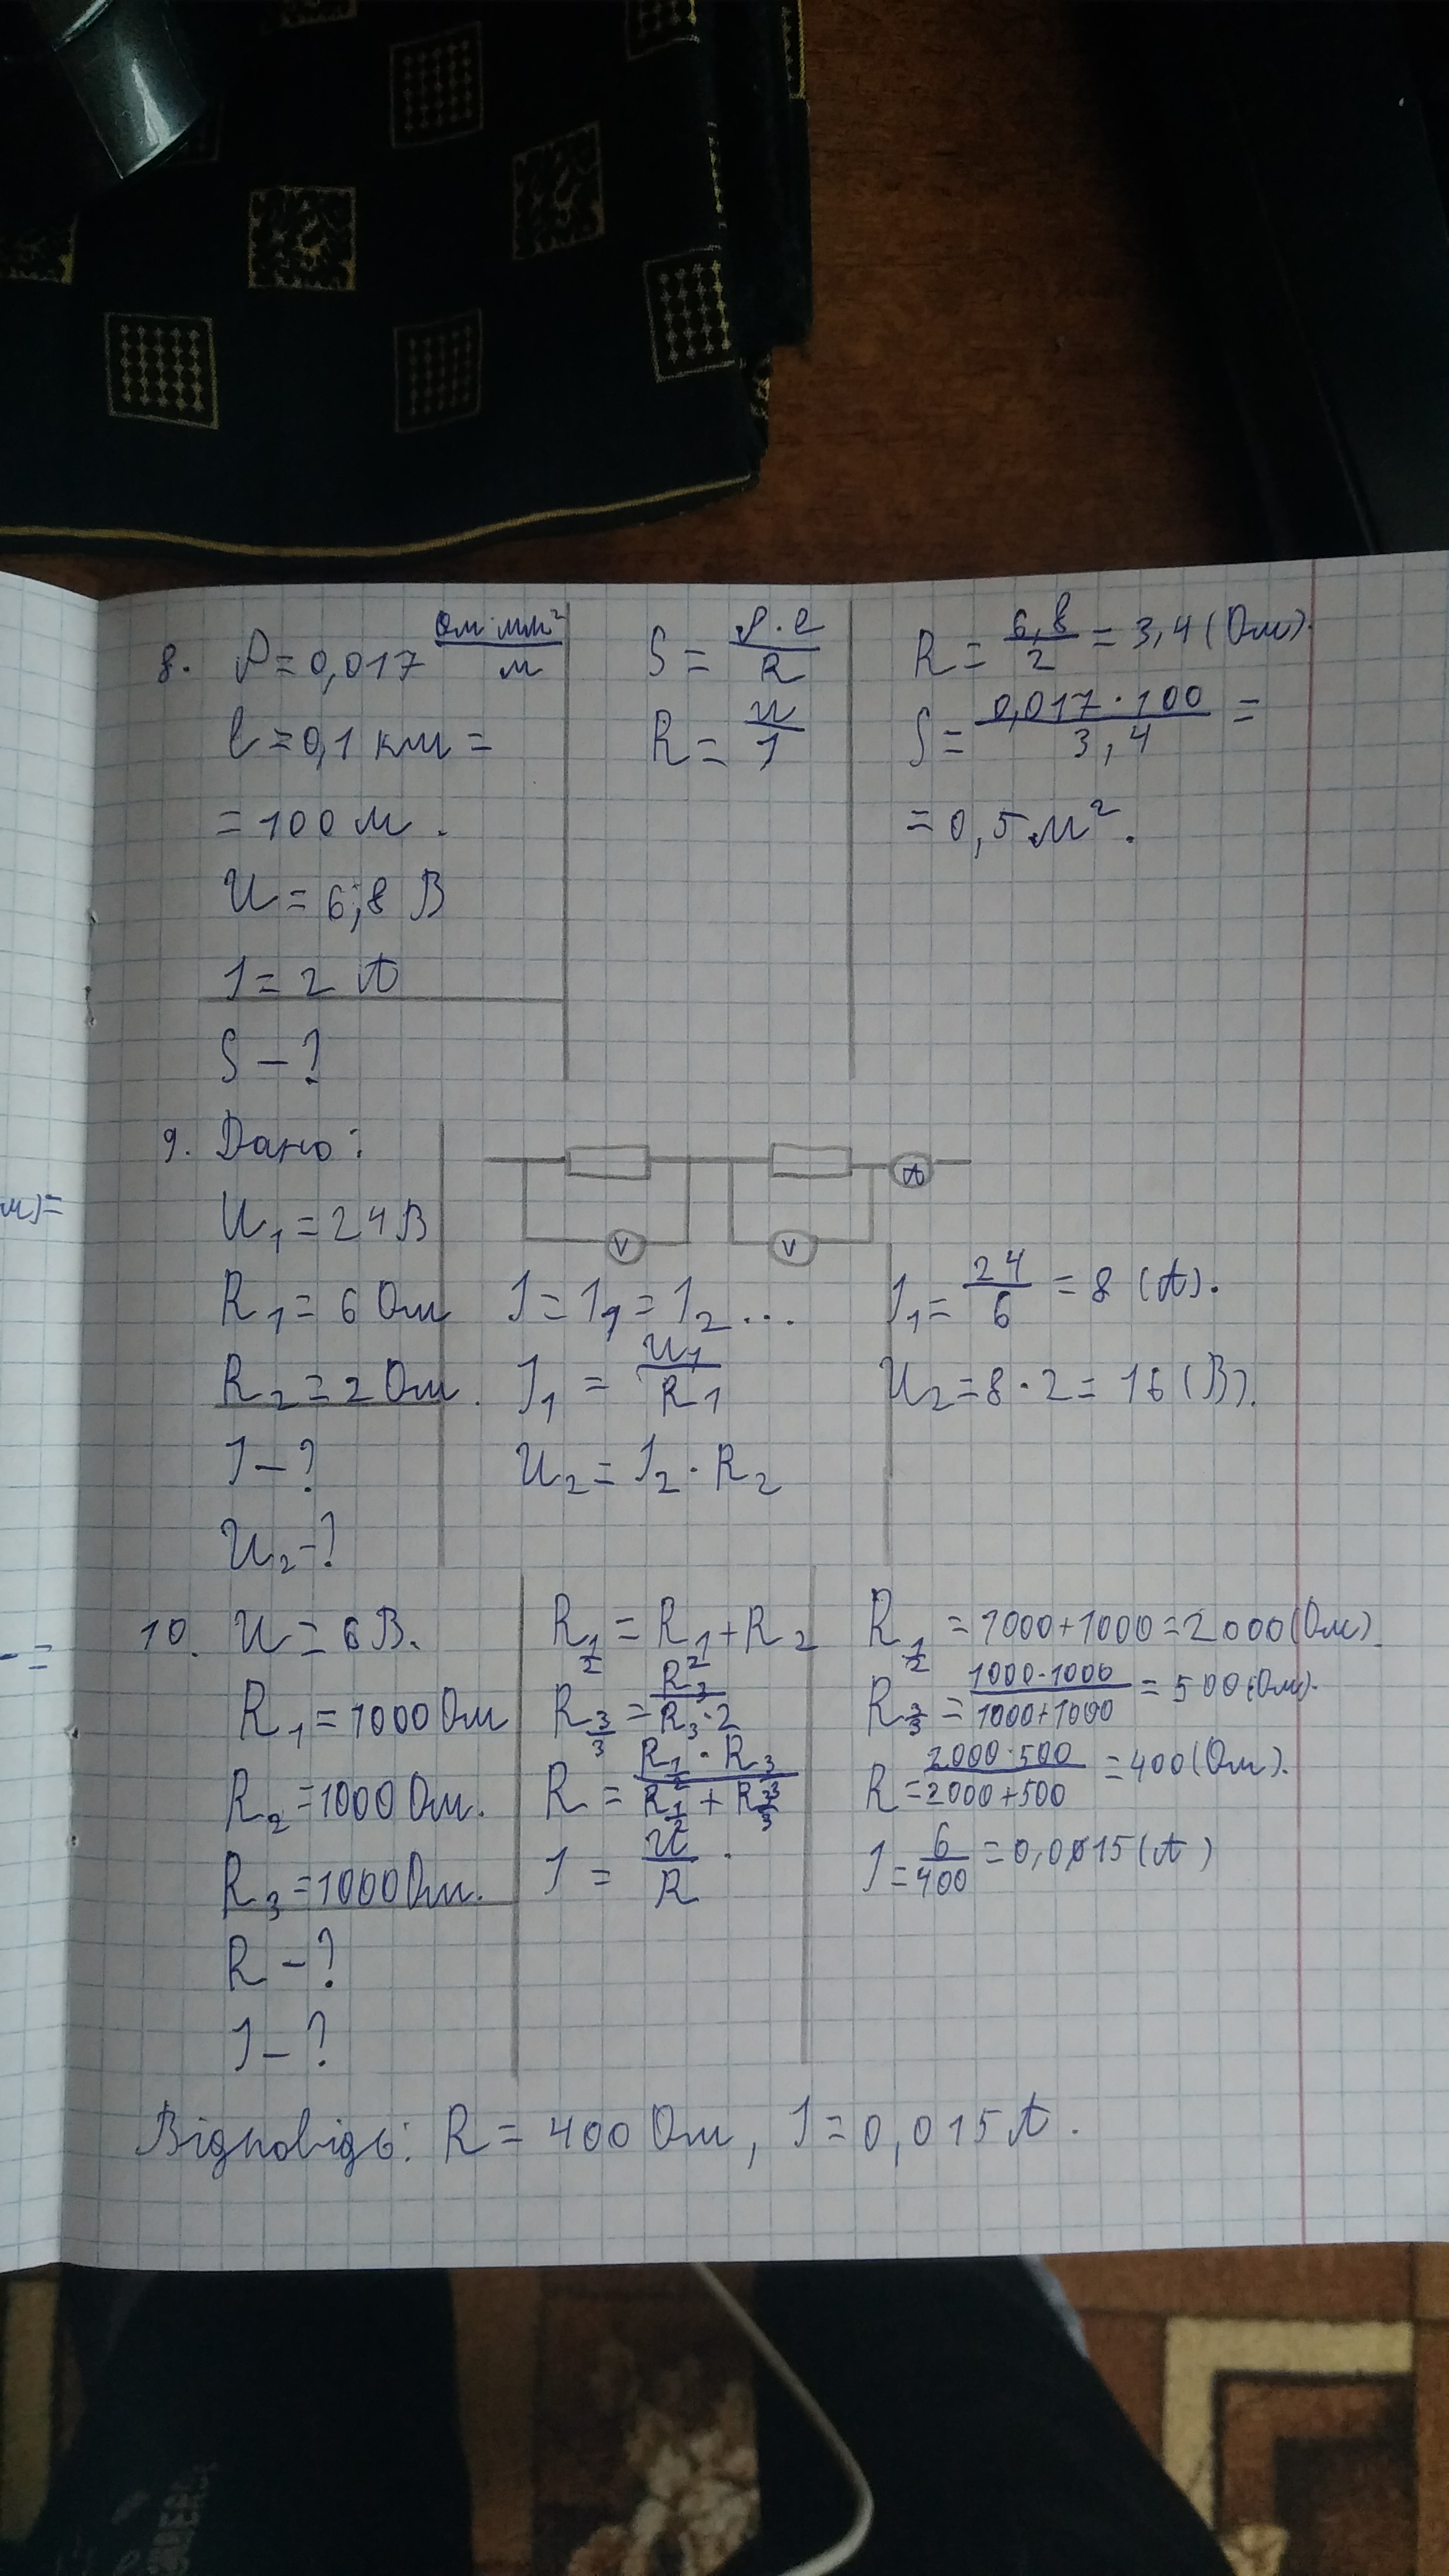 8. ρ = 0,017 Ом·мм²/м
l = 0,1 км =
= 100 м.
U = 6,8 В
I = 2 А
S – ?
S = ρ·l/R
R = U/I
R = 6,8/2 = 3,4 (Ом).
S = 0,017·100/3,4 =
= 0,5 м².
9. Дано:
U₁ = 24 В
R₁ = 6 Ом
R₂ = 2 Ом.
I – ?
U₂ – ?
V V A
I = I₁ = I₂ ...
I₁ = U₁/R₁
U₂ = I₂ · R₂
I₁ = 24/6 = 8 (А).
U₂ = 8 · 2 = 16 (В).
10. U = 6 В.
R₁ = 1000 Ом
R₂ = 1000 Ом.
R₃ = 1000 Ом.
R – ?
I – ?
R½ = R₁ + R₂
R3/3 = R₃²/R₃·2
R = R½ · R₃/R½ + R3/3
I = U/R.
R½ = 1000 + 1000 = 2000 (Ом).
R3/3 = 1000·1000/1000+1000 = 500 (Ом).
R = 2000·500/2000+500 = 400 (Ом).
I = 6/400 = 0,015 (А)
Відповідь: R = 400 Ом, I = 0,015 А.
м) =
- =